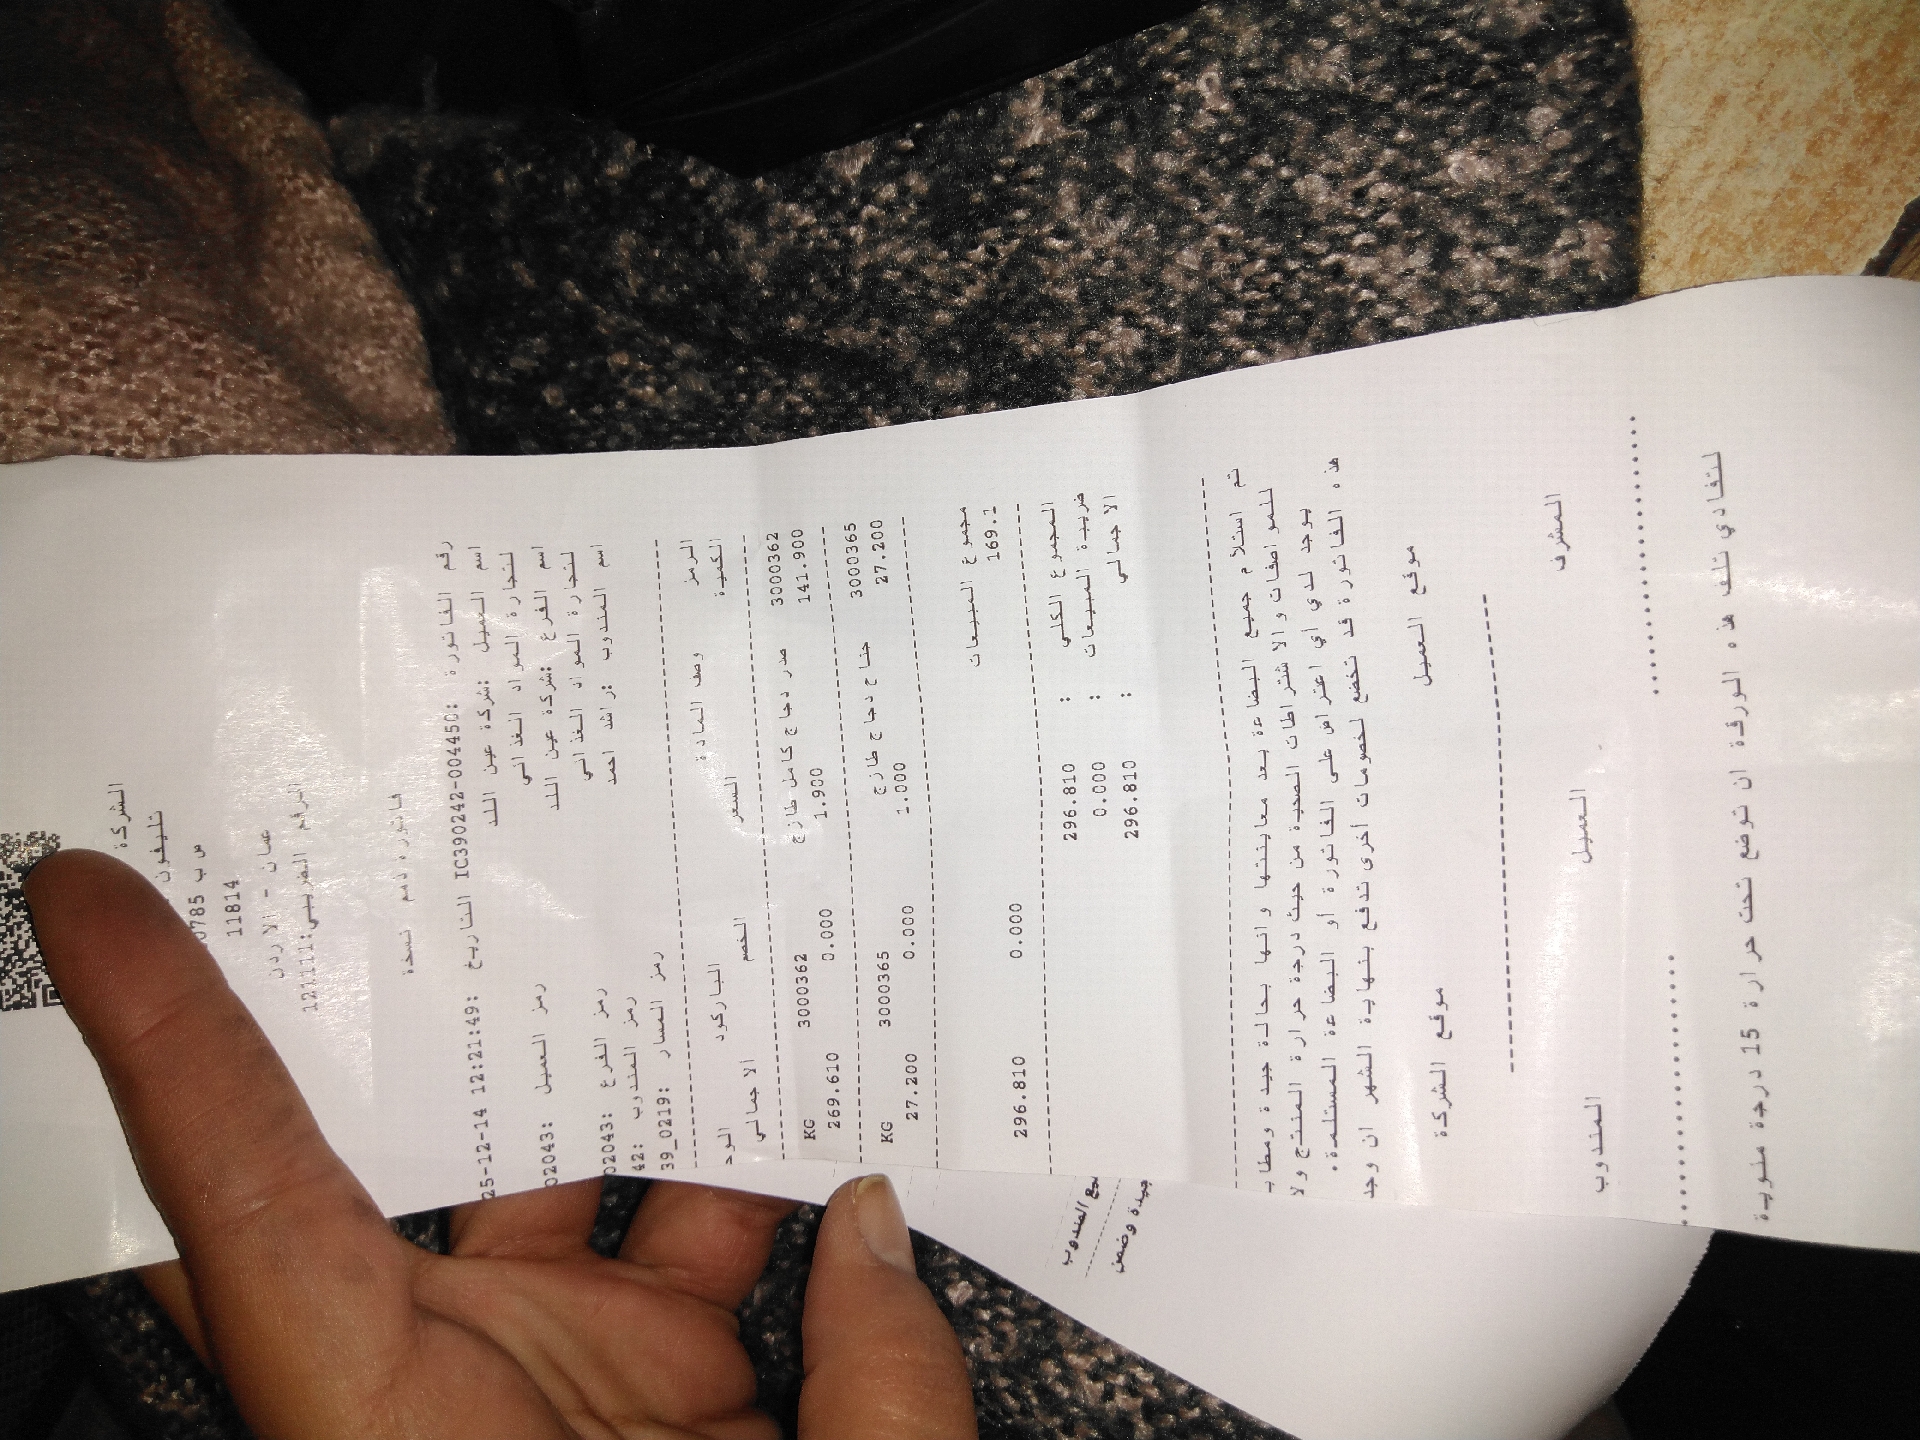 الشركة
تليفون
ص ب 0785
11814
عمان - الاردن
الرقم الضريبي:121111
فاتورة ذمم نسخة
رقم الفاتورة :IC390242-004450 التاريخ :25-12-14 12:21:49
اسم العميل :شركة عين اللد رمز العميل :02043
لتجارة المواد الغذائي
اسم الفرع :شركة عين اللد رمز الفرع :02043
لتجارة المواد الغذائي
اسم المندوب :راشد احمد رمز المندوب :42
رمز المسار :39_0219
الرمز وصف المادة الباركود الوحد
الكمية السعر الخصم الاجمالي
3000362 صدر دجاج كامل طازج 3000362 KG
141.900 1.900 0.000 269.610
3000365 جناح دجاج طازج 3000365 KG
27.200 1.000 0.000 27.200
مجموع المبيعات
169.1 0.000 296.810
المجموع الكلي : 296.810
ضريبة المبيعات : 0.000
الاجمالي : 296.810
تم استلام جميع البضاعة بعد معاينتها وانها بحالة جيدة ومطاب
للمواصفات والاشتراطات الصحية من حيث درجة حرارة المنتج ولا
يوجد لدي أي اعتراض على الفاتورة أو البضاعة المستلمة.
هذه الفاتورة قد تخضع لخصومات أخرى تدفع بنهاية الشهر ان وجد
موقع العميل موقع الشركة
المشرف العميل المندوب
لتفادي تلف هذه الورقة ان توضع تحت حرارة 15 درجة مئوية
المندوب
جيدة وضمن